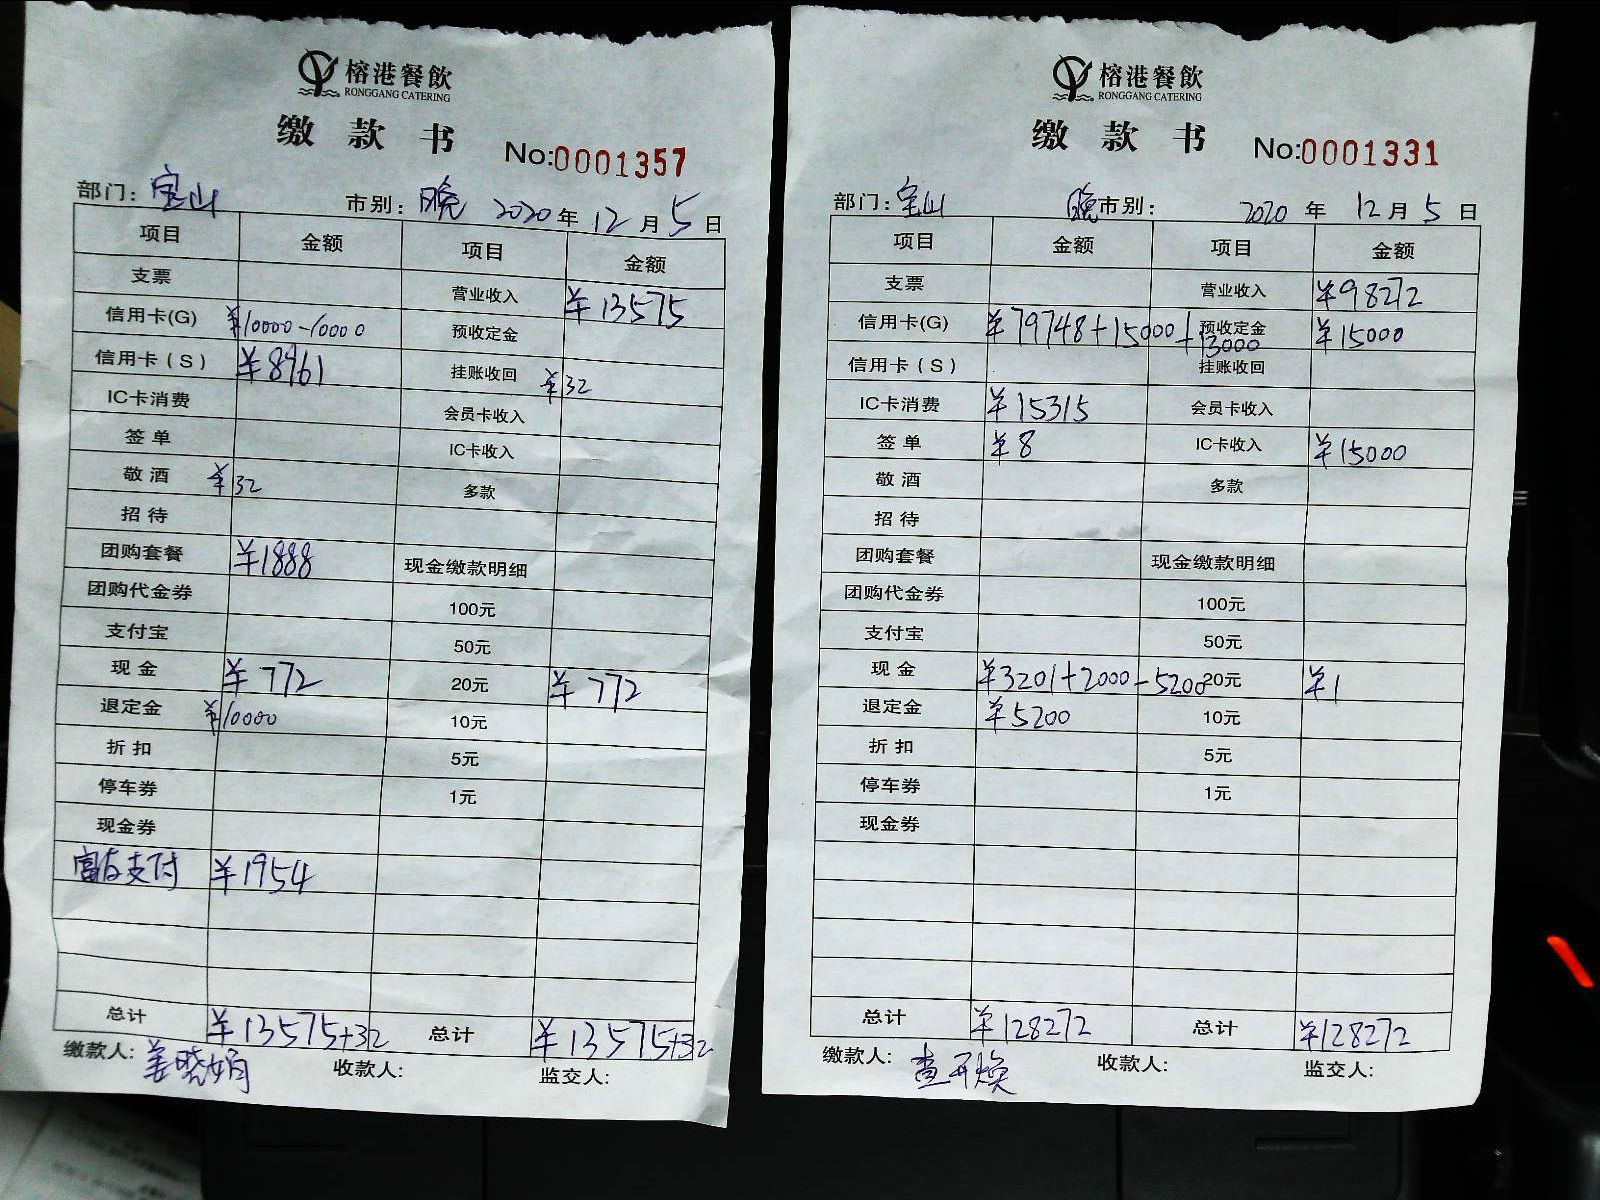 榕港餐飲
RONGGANG CATERING
缴款书
No:0001357
部门: 宝山 市别: 晚 2020年12月5日
项目 金额 项目 金额
支票 营业收入 ¥13575
信用卡(G) ¥10000-10000 预收定金
信用卡(S) ¥8961 挂账收回 ¥32
IC卡消费 会员卡收入
签单 IC卡收入
敬酒 ¥32 多款
招待
团购套餐 ¥1888 现金缴款明细
团购代金券 100元
支付宝 50元
现金 ¥772 20元 ¥772
退定金 ¥10000 10元
折扣 5元
停车券 1元
现金券
富友支付 ¥1954
总计 ¥13575+32 总计 ¥13575+32
缴款人: 姜晓娟 收款人: 监交人:
榕港餐飲
RONGGANG CATERING
缴款书
No:0001331
部门: 宝山 晚市别: 2020年12月5日
项目 金额 项目 金额
支票 营业收入 ¥98272
信用卡(G) ¥79748+15000+13000 预收定金 ¥15000
信用卡(S) 挂账收回
IC卡消费 ¥15315 会员卡收入
签单 ¥8 IC卡收入 ¥15000
敬酒 多款
招待
团购套餐 现金缴款明细
团购代金券 100元
支付宝 50元
现金 ¥3201+2000-5200 20元 ¥1
退定金 ¥5200 10元
折扣 5元
停车券 1元
现金券
总计 ¥128272 总计 ¥128272
缴款人: 查开焕 收款人: 监交人: